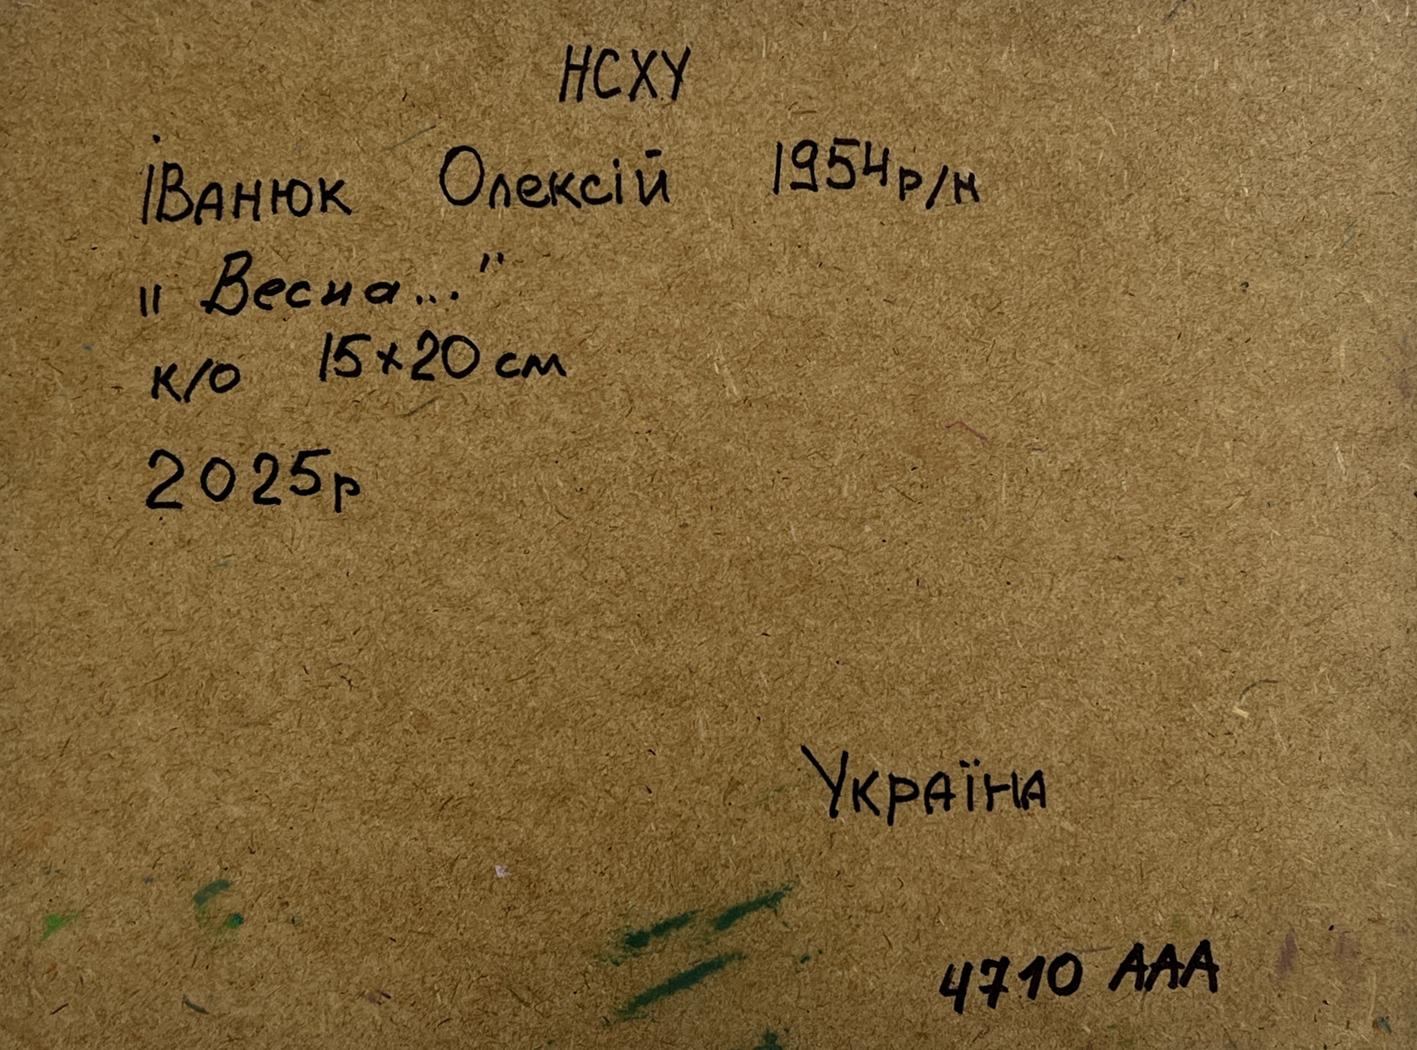 НСХУ
Іванюк Олексій 1954р/н
„Весна..."
к/о 15х20 см
2025р
Україна
4710 ААА